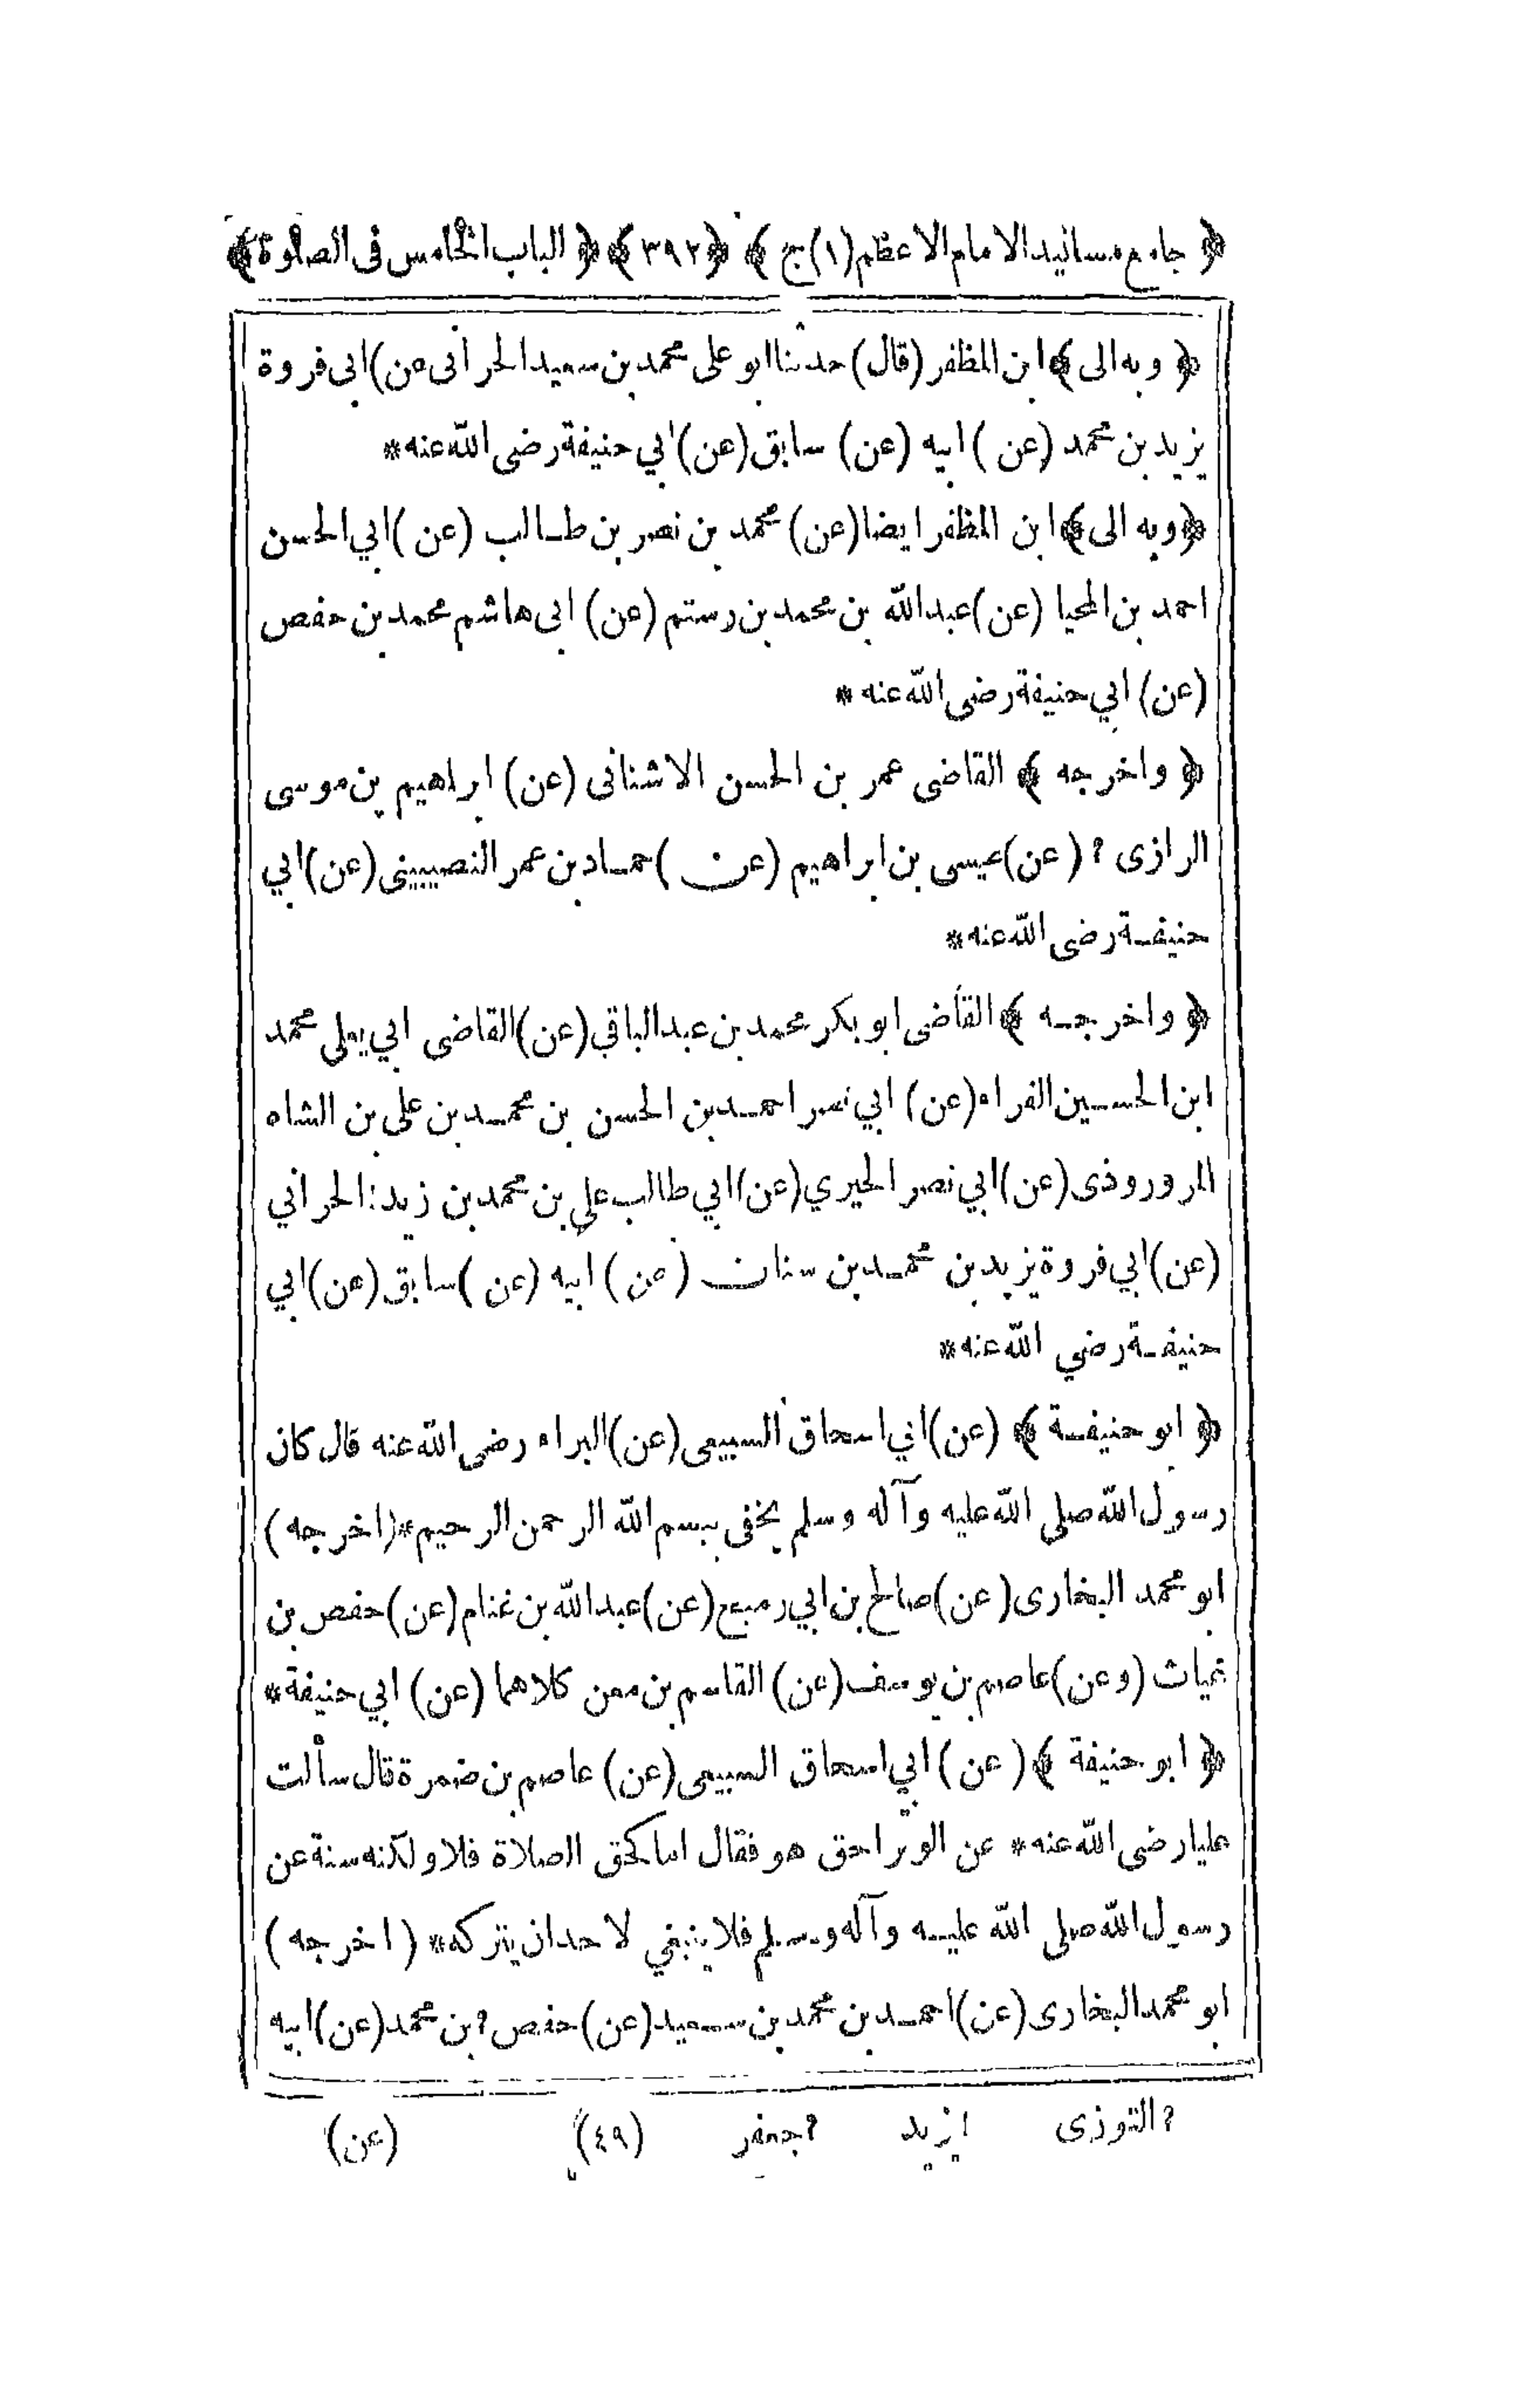 ﴿ جامع مسانيد الامام الاعظم (١) ج ﴾ ﴿٣٩٢﴾ ﴿ الباب الخامس فى الصلوة ﴾
﴿ وبه الى ﴾ ابن المظفر (قال) حدثنا ابو على محمد بن سعيد الحرانى (عن) ابى فروة
يزيد بن محمد (عن) ابيه (عن) سابق (عن) ابي حنيفة رضى الله عنه *
﴿ وبه الى ﴾ ابن المظفر ايضا (عن) محمد بن نصر بن طالب (عن) ابي الحسن
احمد بن المحيا (عن) عبد الله بن محمد بن رستم (عن) ابى هاشم محمد بن حفص
(عن) ابي حنيفة رضى الله عنه *
﴿ واخرجه ﴾ القاضى عمر بن الحسن الاشنانى (عن) ابراهيم بن موسى
الرازى ? (عن) عيسى بن ابراهيم (عن) حماد بن عمر النصيبينى (عن) ابي
حنيفة رضى الله عنه *
﴿ واخرجه ﴾ القاضى ابو بكر محمد بن عبد الباقي (عن) القاضى ابي يعلى محمد
ابن الحسين الفراء (عن) ابي نصر احمد بن الحسن بن محمد بن على بن الشاه
المروروذى (عن) ابي نصر الحيري (عن) ابي طالب علي بن محمد بن زيد : الحراني
(عن) ابي فروة يزيد بن محمد بن سنان (عن) ابيه (عن) سابق (عن) ابي
حنيفة رضي الله عنه *
﴿ ابو حنيفة ﴾ (عن) ابي اسحاق السبيعى (عن) البراء رضى الله عنه قال كان
رسول الله صلى الله عليه وآله وسلم يخفى ببسم الله الرحمن الرحيم * (اخرجه)
ابو محمد البخارى (عن) صالح بن ابي رميح (عن) عبد الله بن غنام (عن) حفص بن
غياث (وعن) عاصم بن يوسف (عن) القاسم بن معن كلاهما (عن) ابي حنيفة *
﴿ ابو حنيفة ﴾ (عن) ابي اسحاق السبيعى (عن) عاصم بن ضمرة قال سألت
عليا رضى الله عنه * عن الوتر احق هو فقال اما كحق الصلاة فلا ولكنه سنة عن
رسول الله صلى الله عليه وآله وسلم فلا ينبغي لاحد ان يتركه * (اخرجه)
ابو محمد البخارى (عن) احمد بن محمد بن سعيد (عن) حفص ? بن محمد (عن) ابيه
? التوزى يزيد ? جعفر (٤٩) (عن)